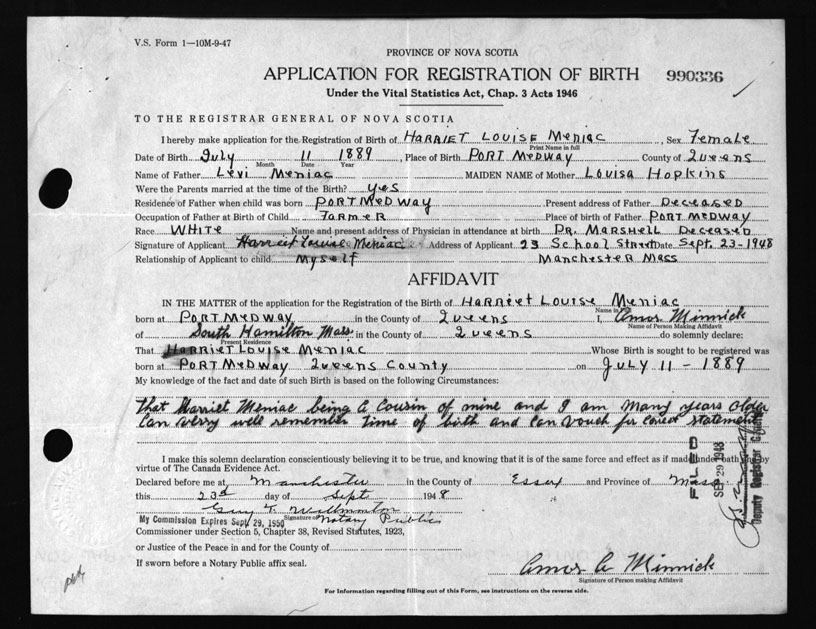 V.S. Form 1—10M-9-47
PROVINCE OF NOVA SCOTIA
APPLICATION FOR REGISTRATION OF BIRTH 990336
Under the Vital Statistics Act, Chap. 3 Acts 1946
TO THE REGISTRAR GENERAL OF NOVA SCOTIA
I hereby make application for the Registration of Birth of HARRIET LOUISE MENIAC, Sex Female
Print Name in full
Date of Birth July 11 1889, Place of Birth PORT MEDWAY County of Queens
Month Date Year
Name of Father LEVI MENIAC MAIDEN NAME of Mother LOUISA HOPKINS
Were the Parents married at the time of the Birth? yes
Residence of Father when child was born PORT MEDWAY Present address of Father DECEASED
Occupation of Father at Birth of Child FARMER Place of birth of Father PORT MEDWAY
Race WHITE Name and present address of Physician in attendance at birth DR. MARSHELL DECEASED
Signature of Applicant Harriet Louise Meniac Address of Applicant 23 School Street Date Sept. 23-1948
Relationship of Applicant to child Myself MANCHESTER MASS
AFFIDAVIT
IN THE MATTER of the application for the Registration of the Birth of HARRIET LOUISE MENIAC
Name in
born at PORT MEDWAY in the County of Queens I, Amos Minnick
Name of Person Making Affidavit
of South Hamilton Mass. in the County of Queens do solemnly declare:
Present Residence
That HARRIET LOUISE MENIAC Whose Birth is sought to be registered was
born at PORT MEDWAY Queens County on July 11 - 1889
My knowledge of the fact and date of such Birth is based on the following Circumstances:
That Harriet Meniac being a cousin of mine and I am many years older
Can verry well remember time of birth and can vouch for correct statement
I make this solemn declaration conscientiously believing it to be true, and knowing that it is of the same force and effect as if made under oath and by
virtue of The Canada Evidence Act.
Declared before me at Manchester in the County of Essex and Province of Mass.
this 23rd day of Sept 1948
My Commission Expires Sept. 29, 1950 Signature of Notary Public
Commissioner under Section 5, Chapter 38, Revised Statutes, 1923,
or Justice of the Peace in and for the County of
If sworn before a Notary Public affix seal.
Amos A Minnick
Signature of Person making Affidavit
For Information regarding filling out of this Form, see instructions on the reverse side.
FILED
SEP 29 1948
Deputy Registrar General